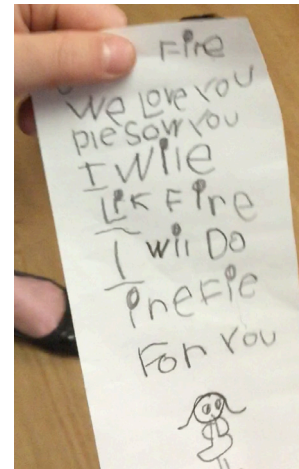 Fire
We Love you
ple sow you
I Wile
Lik Fire
I will Do
inefie
For You